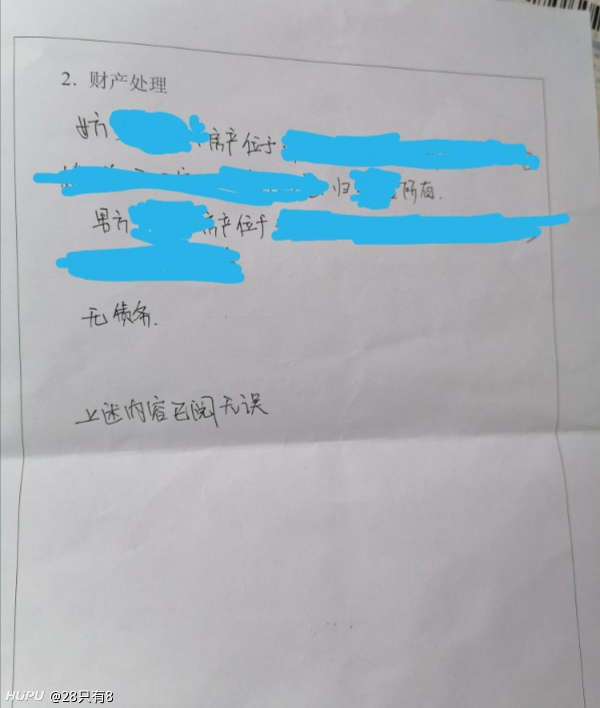 2. 财产处理
女方 房产位于
归 所有.
男方 房产位于
无债务.
上述内容已阅无误
HUPU @28只有8